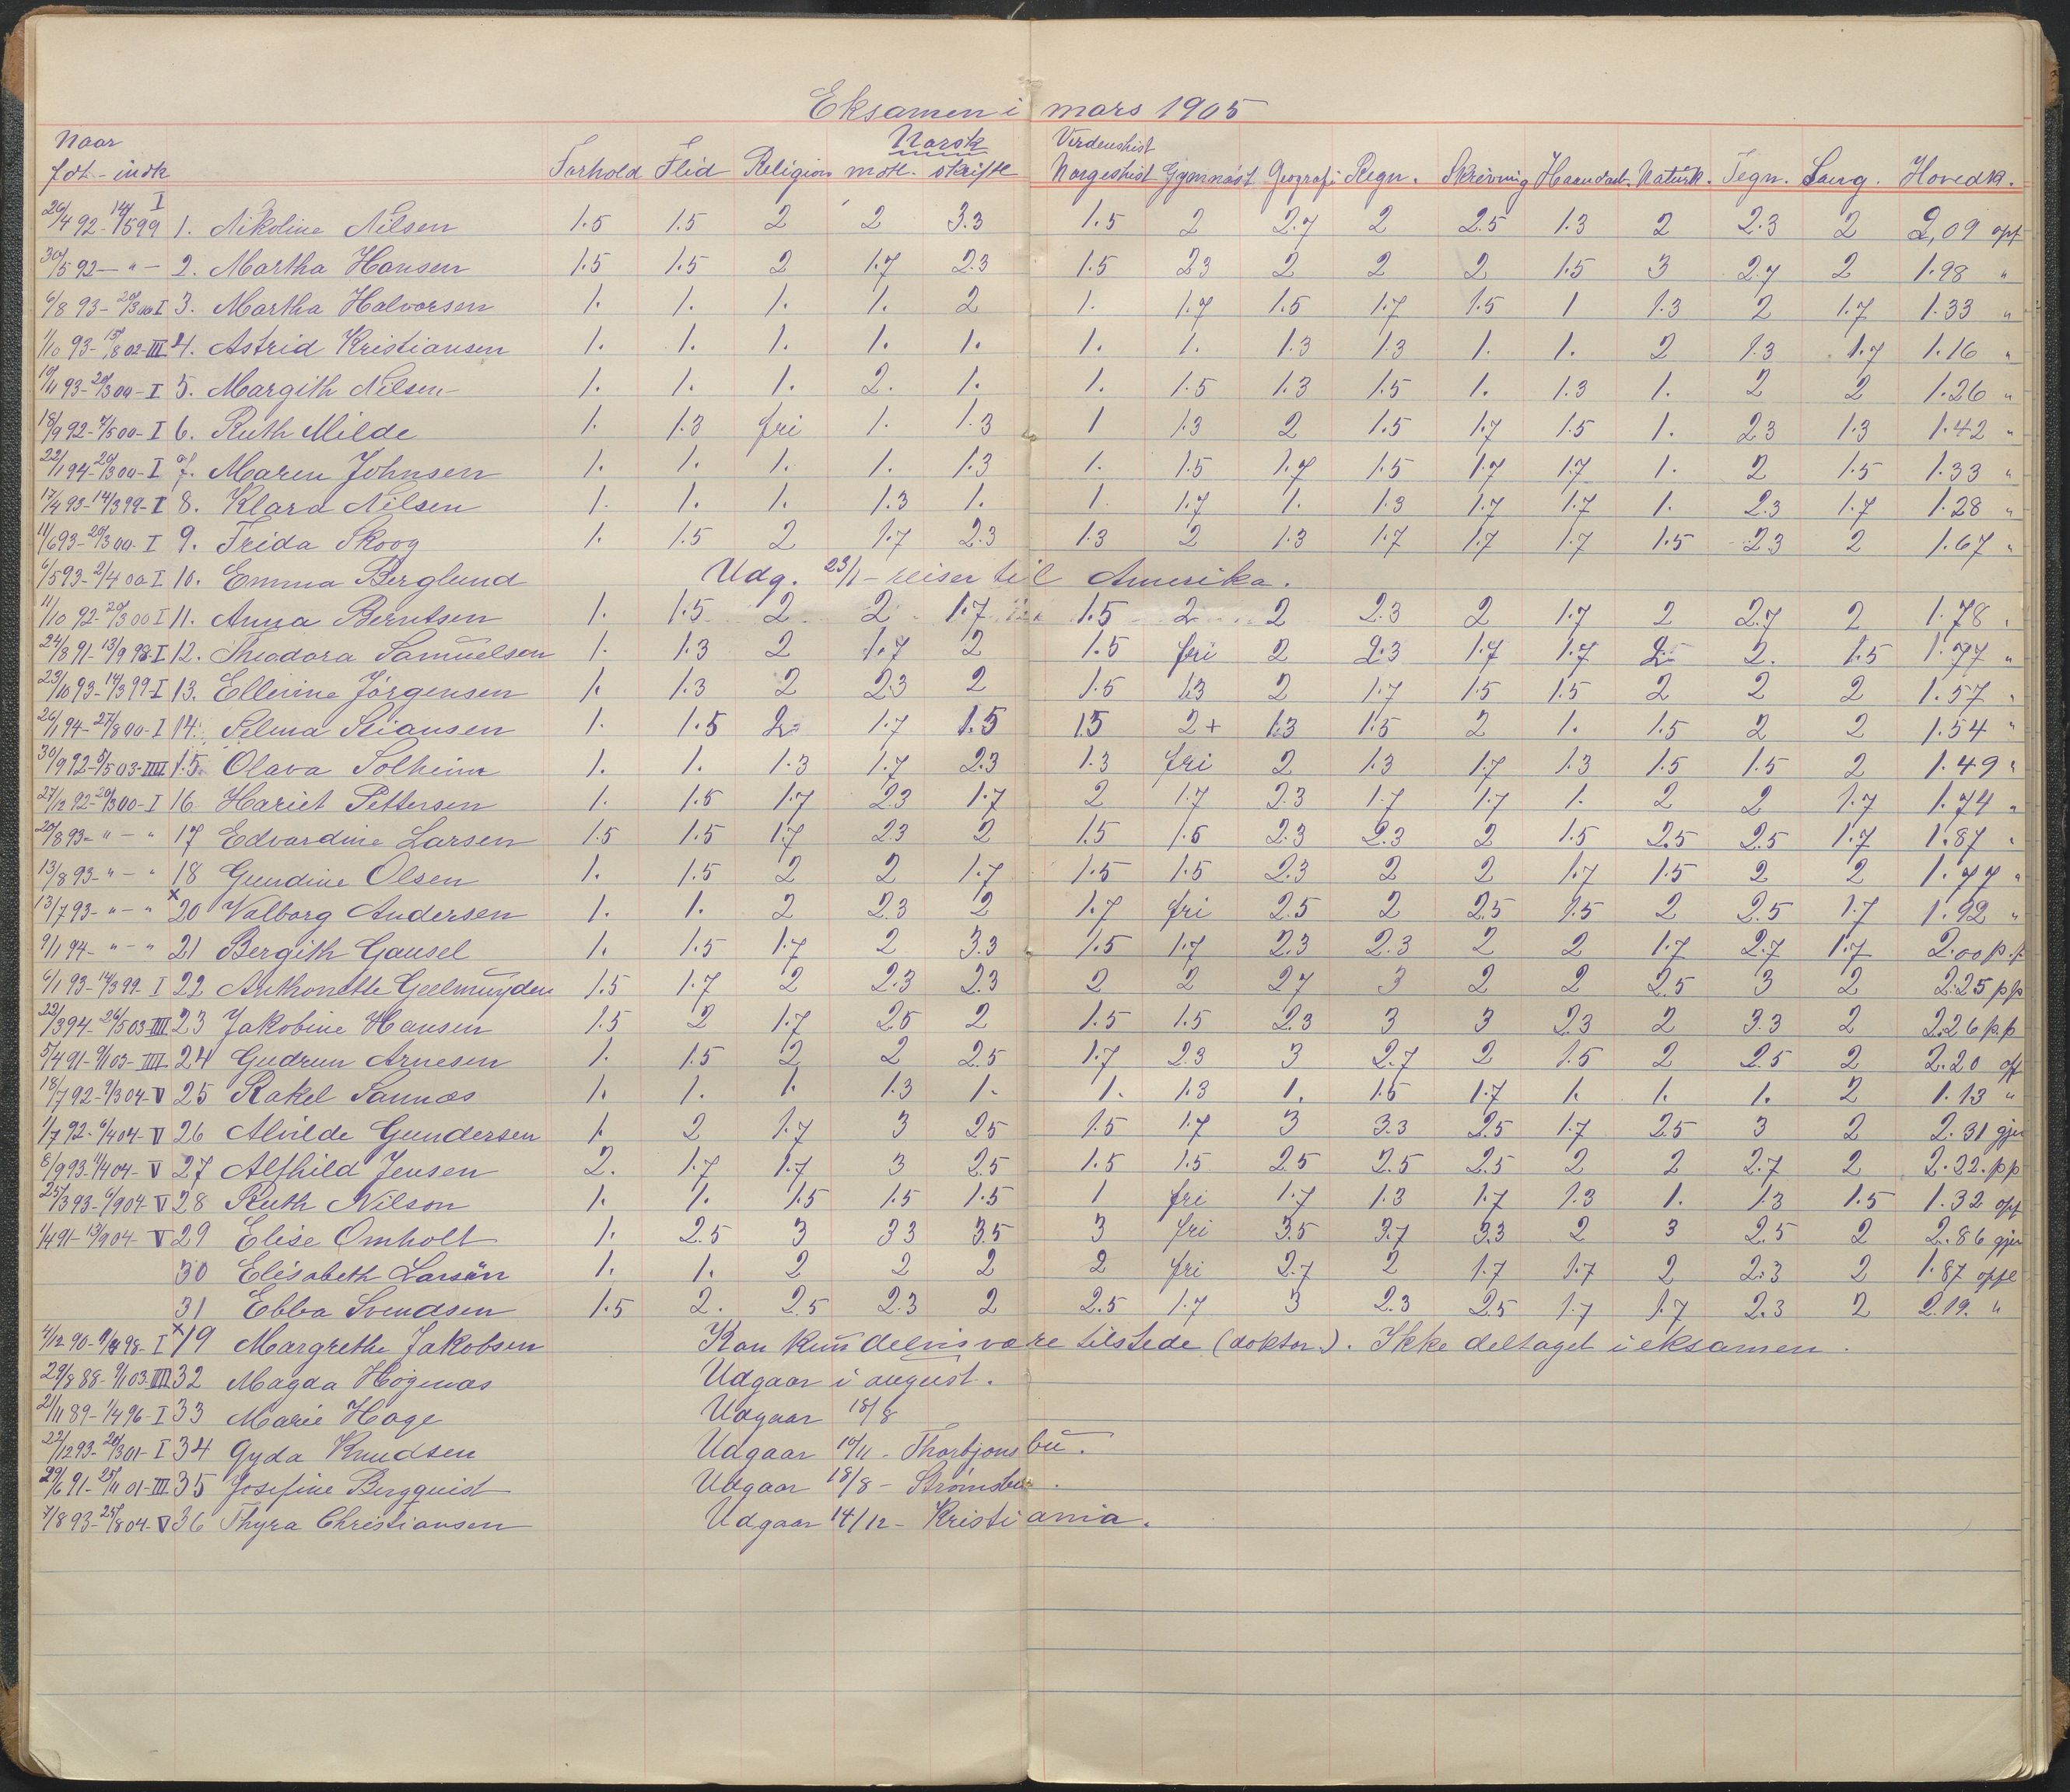 Eksamen i mars 1905
Naar Norsk Verdenshist
fdt - indk Forhold Flid Religion mdtl. skriftl Norgeshist Gymnast Geografi Regn. Skrivning Haandarb. Naturk. Tegn. Sang. Hovedk.
26/4 92 - 14/5 99 I 1. Nikoline Nilsen 1.5 1.5 2 2 3.3 1.5 2 2.7 2 2.5 1.3 2 2.3 2 2,09 opf
30/5 92 — " — 2. Martha Hansen 1.5 1.5 2 1.7 2.3 1.5 2.3 2 2 2 1.5 3 2.7 2 1.98 "
6/8 93 - 20/3 00 I 3. Martha Halvorsen 1. 1. 1. 1. 2 1. 1.7 1.5 1.7 1.5 1 1.3 2 1.7 1.33 "
1/10 93 - 15/8 02 - III 4. Astrid Kristiansen 1. 1. 1. 1. 1. 1. 1. 1.3 1.3 1. 1. 2 1.3 1.7 1.16 "
10/11 93 - 20/3 00 - I 5. Margith Nilsen 1. 1. 1. 2. 1. 1. 1.5 1.3 1.5 1. 1.3 1. 2 2 1.26 "
18/9 92 - 7/5 00 - I 6. Ruth Milde 1. 1.3 fri 1. 1.3 1 1.3 2 1.5 1.7 1.5 1. 2.3 1.3 1.42 "
22/1 94 - 20/3 00 - I 7. Maren Johnsen 1. 1. 1. 1. 1.3 1. 1.5 1.7 1.5 1.7 1.7 1. 2 1.5 1.33 "
17/4 93 - 14/3 99 - I 8. Klara Nilsen 1. 1. 1. 1.3 1. 1. 1.7 1. 1.3 1.7 1.7 1. 2.3 1.7 1.28 "
11/6 93 - 20/3 00. I 9. Frida Skoog 1. 1.5 2 1.7 2.3 1.3 2 1.3 1.7 1.7 1.7 1.5 2.3 2 1.67 "
6/5 93 - 2/4 00 I 10. Emma Berglund Udg. 23/1 - reiser til Amerika.
11/10 92 - 20/3 00 I 11. Anna Berntsen 1. 1.5 2 2 1.7 1.5 2 2 2.3 2 1.7 2 2.7 2 1.78 "
24/8 91 - 13/9 98 - I 12. Theodora Samuelsen 1. 1.3 2 1.7 2 1.5 fri 2 2.3 1.7 1.7 2 2. 1.5 1.77 "
23/10 93 - 14/3 99 - I 13. Ellevine Jörgensen 1. 1.3 2 2.3 2 1.5 1.3 2 1.7 1.5 1.5 2 2 2 1.57 "
26/1 94 - 27/8 00 - I 14. Selma Stiansen 1. 1.5 2 1.7 1.5 1.5 2+ 1.3 1.5 2 1. 1.5 2 2 1.54 "
30/9 92 - 5/5 03 - IIII 15. Olava Solheim 1. 1. 1.3 1.7 2.3 1.3 fri 2 1.3 1.7 1.3 1.5 1.5 2 1.49 "
27/12 92 - 20/3 00 - I 16. Hariet Pettersen 1. 1.5 1.7 2.3 1.7 2 1.7 2.3 1.7 1.7 1. 2 2 1.7 1.74 "
20/8 93 - " - " 17 Edvardine Larsen 1.5 1.5 1.7 2.3 2 1.5 1.5 2.3 2.3 2 1.5 2.5 2.5 1.7 1.87 "
13/8 93 - " - " 18 Gundine Olsen 1. 1.5 2 2 1.7 1.5 1.5 2.3 2 2 1.7 1.5 2 2 1.77 "
13/7 93 - " - " x 20 Valborg Andersen 1. 1. 2 2.3 2 1.7 fri 2.5 2 2.5 1.5 2 2.5 1.7 1.92 "
9/1 94 - " - " 21 Bergith Gausel 1. 1.5 1.7 2 3.3 1.5 1.7 2.3 2.3 2 2 1.7 2.7 1.7 2.00 p.p.
6/1 93 - 14/3 99 - I 22 Anthonette Geelmuyden 1.5 1.7 2 2.3 2.3 2 2 2.7 3 2 2 2.5 3 2 2.25 pp
22/3 94 - 26/5 03 - IIII 23 Jakobine Hansen 1.5 2 1.7 2.5 2 1.5 1.5 2.3 3 3 2.3 2 3.3 2 2.26 p.p
5/4 91 - 9/1 03 - IIII 24 Gudrun Arnesen 1. 1.5 2 2 2.5 1.7 2.3 3 2.7 2 1.5 2 2.5 2 2.20 opf
18/7 92 - 9/3 04 - V 25 Rakel Sannæs 1. 1. 1. 1.3 1. 1. 1.3 1. 1.5 1.7 1. 1. 1. 2 1.13 "
1/7 92 - 6/4 04 - V 26 Alvilde Gundersen 1. 2 1.7 3 2.5 1.5 1.7 3 3.3 2.5 1.7 2.5 3 2 2.31 gjen
8/9 93 - 11/4 04 - V 27 Alfhild Jensen 2. 1.7 1.7 3 2.5 1.5 1.5 2.5 2.5 2.5 2 2 2.7 2 2.22. pp
25/3 93 - 6/9 04 - V 28 Ruth Nilson 1. 1. 1.5 1.5 1.5 1 fri 1.7 1.3 1.7 1.3 1. 1.3 1.5 1.32 opf
1/4 91 - 13/9 04 - V 29 Elise Omholt 1. 2.5 3 3.3 3.5 3 fri 3.5 3.7 3.3 2 3 2.5 2 2.86 gjen
30 Elisabeth Larsén 1. 1. 2 2 2 2 fri 2.7 2 1.7 1.7 2 2.3 2 1.87 opfl
31 Ebba Svendsen 1.5 2. 2.5 2.3 2 2.5 1.7 3 2.3 2.5 1.7 1.7 2.3 2 2.19. "
4/12 90 - 98 - I x 19 Margrethe Jakobsen Kan kun delvis være tilstede (doktor). Ikke deltaget i eksamen.
29/8 88 - 9/1 03 IIII 32 Magda Högenæs Udgaar i august.
21/11 89 - 1/4 96 - I 33 Marie Hage Udgaar 18/8
22/12 93 - 20/3 01 - I 34 Gyda Knudsen Udgaar 10/11 - Thorbjønsbu.
29/6 91 - 25/11 01 - III 35 Josefine Bergquist Udgaar 18/8 - Strømsbu.
7/8 93 - 25/8 04 - V 36 Thyra Christiansen Udgaar 14/12 - Kristiania.